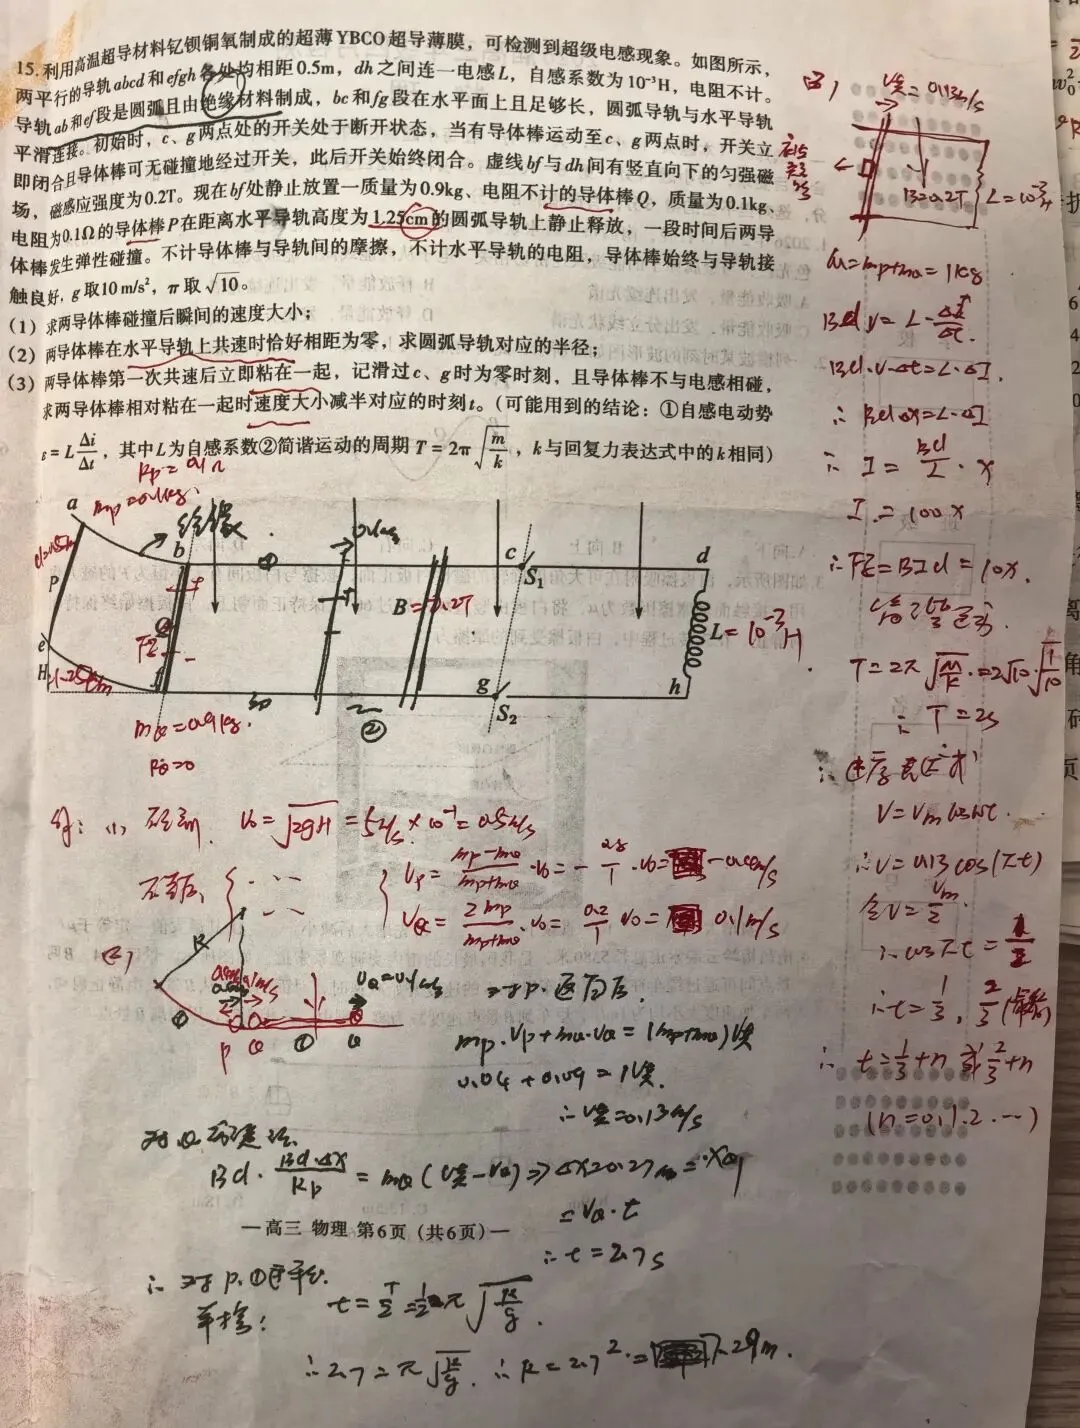 15.利用高温超导材料钇钡铜氧制成的超薄YBCO超导薄膜，可检测到超级电感现象。如图所示，
两平行的导轨abcd和efgh各处均相距0.5m，dh之间连一电感L，自感系数为10⁻³H，电阻不计。
导轨ab和ef段是圆弧且由绝缘材料制成，bc和fg段在水平面上且足够长，圆弧导轨与水平导轨
平滑连接。初始时，c、g两点处的开关处于断开状态，当有导体棒运动至c、g两点时，开关立
即闭合且导体棒可无碰撞地经过开关，此后开关始终闭合。虚线bf与dh间有竖直向下的匀强磁
场，磁感应强度为0.2T。现在bf处静止放置一质量为0.9kg、电阻不计的导体棒Q，质量为0.1kg、
电阻为0.1Ω的导体棒P在距离水平导轨高度为1.25cm的圆弧导轨上静止释放，一段时间后两导
体棒发生弹性碰撞。不计导体棒与导轨间的摩擦，不计水平导轨的电阻，导体棒始终与导轨接
触良好，g取10 m/s²，π取√10。
（1）求两导体棒碰撞后瞬间的速度大小；
（2）两导体棒在水平导轨上共速时恰好相距为零，求圆弧导轨对应的半径；
（3）两导体棒第一次共速后立即粘在一起，记滑过c、g时为零时刻，且导体棒不与电感相碰，
求两导体棒相对粘在一起时速度大小减半对应的时刻t。（可能用到的结论：①自感电动势
ε=L Δi/Δt，其中L为自感系数②简谐运动的周期T=2π√(m/k)，k与回复力表达式中的k相同）
Rp=0.1Ω
mp=0.1kg
a
绝缘
b
①
c
S₁
d
d=0.5m
P
②
B=0.2T
L=10⁻³H
e
H
1.25cm
f
g
S₂
h
②
mQ=0.9kg
RQ=0
解：(1) 碰前 v₀=√2gH=5m/s×10⁻¹=0.5m/s
碰后
vp=(mp-mQ)/(mp+mQ)·v₀=-0.8/1·v₀=-0.4m/s
vQ=2mp/(mp+mQ)·v₀=0.2/1 v₀=0.1m/s
(2)
R
P Q ① Q
vQ=0.1m/s
对P.返回后
mp·vp+mQ·vQ=(mp+mQ)v共
0.04+0.09=1v共
∴v共=0.13m/s
Bd·Bd·ΔX/Rp=mQ(v共-vQ)⇒ΔX=0.27m=XQ
=vQ·t
∴t=2.7s
—高三 物理 第6页（共6页）—
∴对P.①
单摆：
t=T/2=1/2·2π√(R/g).
∴2.7=π√(R/g). ∴R=2.7²=7.29m.
(3)
v共=0.13m/s
B=0.2T
L=10⁻³H
m=mp+mQ=1kg
Bd·v=L·ΔI/Δt.
Bd·v·Δt=L·ΔI.
∴Bd·Δx=L·ΔI
∴I=Bd/L·x
I=100x
∴F安=BId=10x.
T=2π√(m/k)=2√10·√(1/10)
∴T=2s
∴速度表达式
v=vm cosωt.
∴v=0.13cos(πt)
令v=vm/2.
∴cosπt=1/2
∴t=1/3，2/3
∴t=1/3+n或2/3+n
(n=0,1,2…)